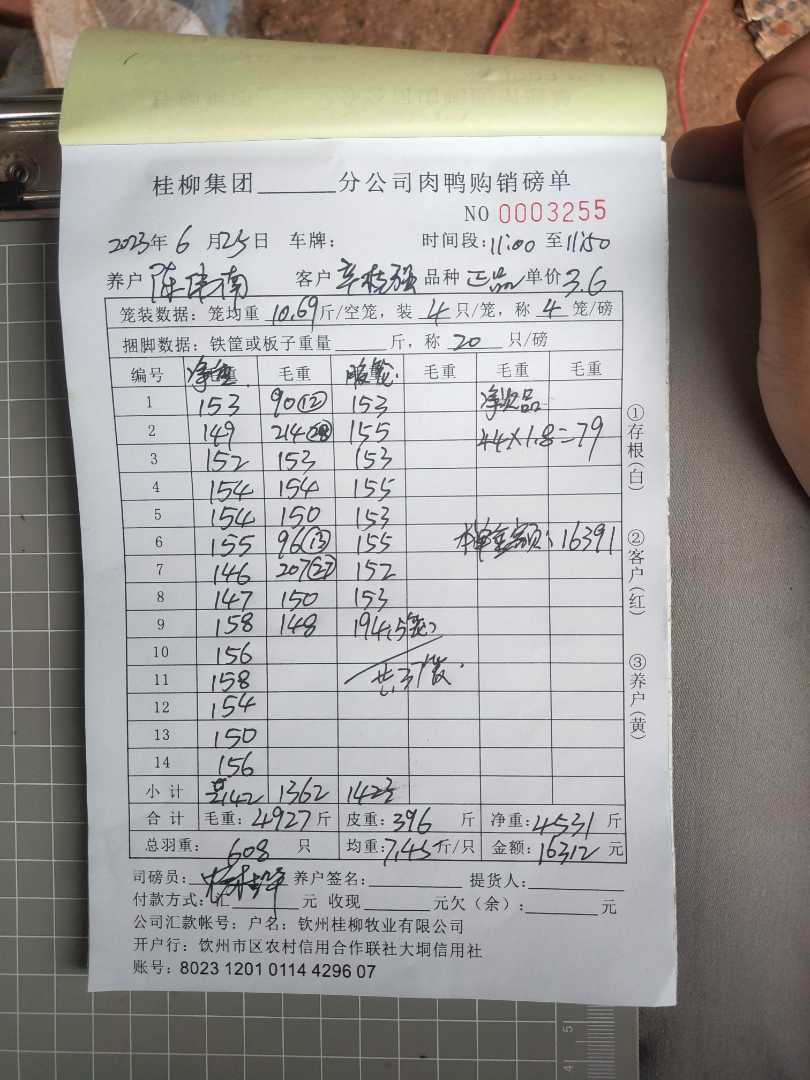 桂柳集团______分公司肉鸭购销磅单
NO 0003255
2023年 6 月 25 日 车牌: 时间段: 11:00 至 11:50
养户 陈伟南 客户 辛桂强 品种 正品 单价 3.6
笼装数据: 笼均重 10.69 斤/空笼, 装 4 只/笼, 称 4 笼/磅
捆脚数据: 铁筐或板子重量____斤, 称 20 只/磅
编号 毛重 毛重 毛重 毛重 毛重
1 153 90(12) 153 净次品
2 149 214(28) 155 44×1.8=79
3 152 153 153
4 154 154 155
5 154 150 153
6 155 96(13) 155 金额: 16391
7 146 207(27) 152
8 147 150 153
9 158 148 194(5笼)
10 156
11 158 共37
12 154
13 150
14 156
小计 2142 1362 1423
合计 毛重: 4927 斤 皮重: 396 斤 净重: 4531 斤
总羽重: 608 只 均重: 7.45 斤/只 金额: 16312 元
司磅员: 养户签名: 提货人:
付款方式: 汇______元 收现______元欠(余): ______元
公司汇款帐号: 户名: 钦州桂柳牧业有限公司
开户行: 钦州市区农村信用合作联社大垌信用社
账号: 8023 1201 0114 4296 07
①存根(白)
②客户(红)
③养户(黄)
5
4